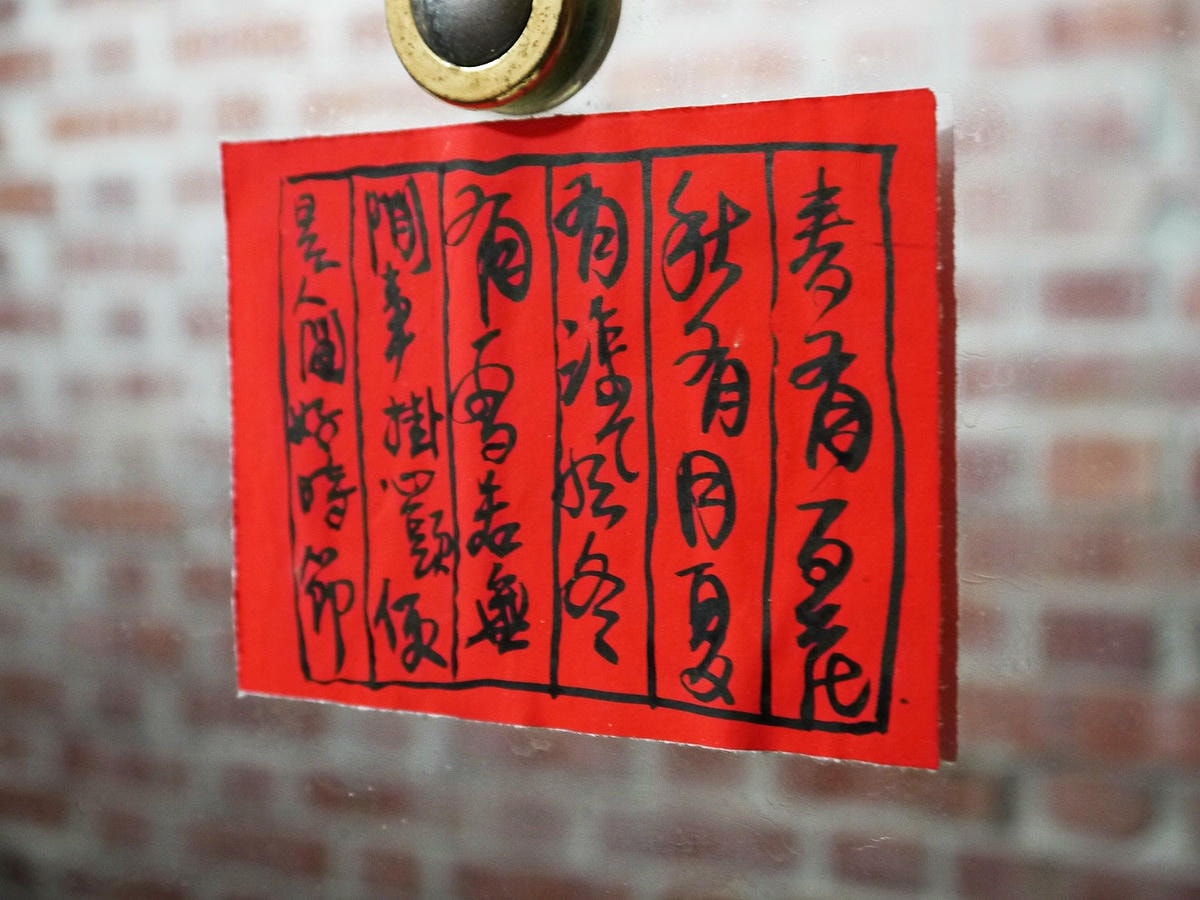 春有百花
秋有月夏
有涼風冬
有雪若無
閒事掛心頭便
是人間好時節